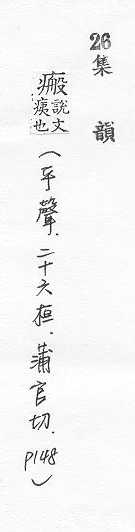 26集韻
瘢說文痍也（平聲．二十六桓．蒲官切．P148）